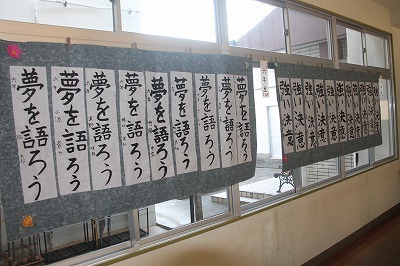 夢を語ろう
夢を語ろう
夢を語ろう
夢を語ろう
夢を語ろう
夢を語ろう
夢を語ろう
夢を語ろう
夢を語ろう
強い決意
強い決意
強い決意
強い決意
強い決意
強い決意
強い決意
強い決意